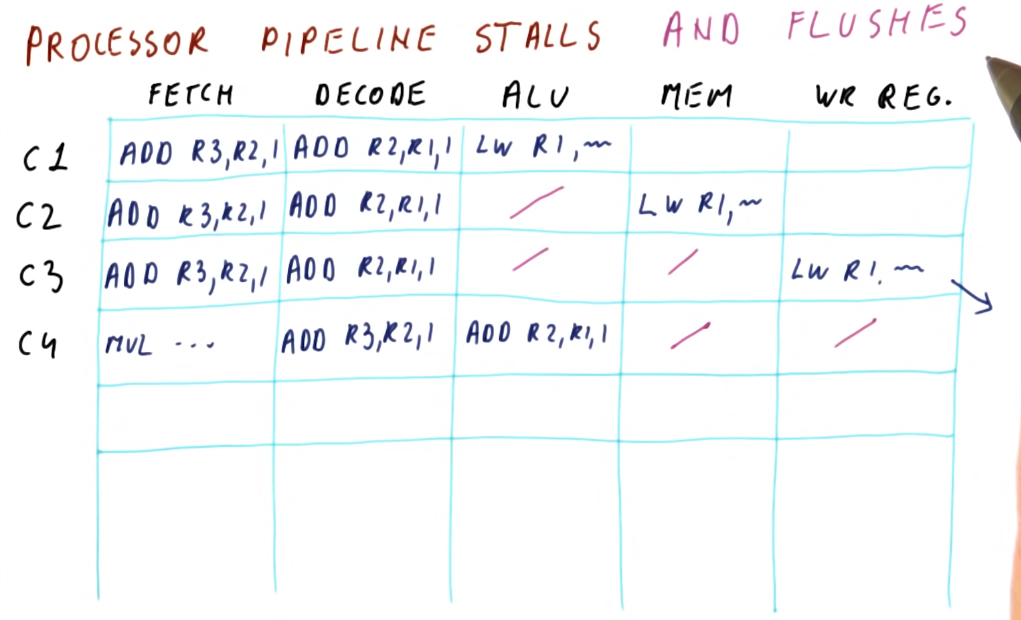 PROCESSOR PIPELINE STALLS AND FLUSHES
FETCH DECODE ALU MEM WR REG.
C1 ADD R3,R2,1 ADD R2,R1,1 LW R1,~
C2 ADD R3,R2,1 ADD R2,R1,1 / LW R1,~
C3 ADD R3,R2,1 ADD R2,R1,1 / / LW R1. ~
C4 MUL ... ADD R3,R2,1 ADD R2,R1,1 / /